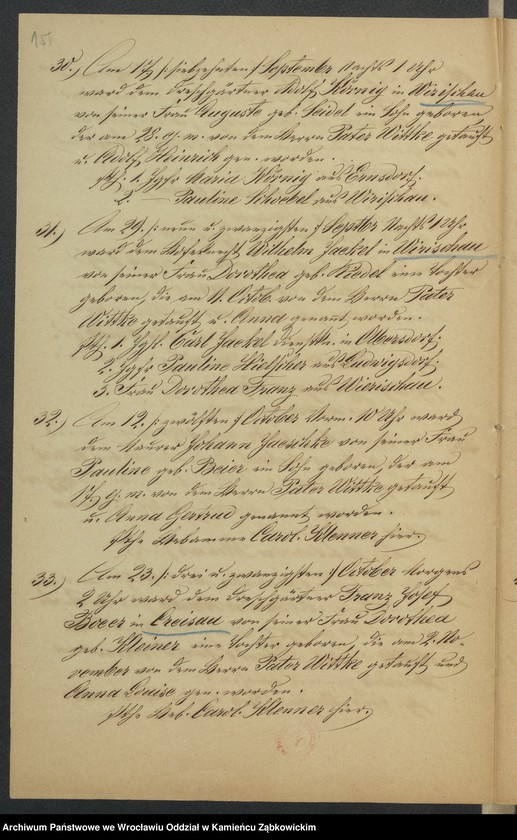 15.
30.) Am 17. /: siebzehnten :/ September Nachts 1 Uhr
ward dem Dreschgärtner Adolf Körnig in Wirischau
von seiner Frau Auguste geb. Seidel ein Sohn geboren
der am 28. ej. m. von dem Herrn Pater Wittke getauft
u. Adolf Heinrich gen. worden.
1. Jgfr Maria Körnig aus Ernsdorf.
2. — Pauline aus Wirischau.
31.) Am 29. /: neun u. zwanzigsten :/ Septbr Nachts 1 Uhr
ward dem Wilhelm Jaekel in Wirischau
von seiner Frau Dorothea geb. Riedel eine Tochter
geboren, die am 4. Octob. von dem Herrn Pater
Wittke getauft u. Anna genannt worden.
1. Jggs. Carl Jaekel in Olbersdorf;
2. Jgfr Pauline Hielscher aus Ludwigsdorf;
3. Frau Dorothea Franz aus Wierischau.
32.) Am 12. /: zwölften :/ October Vorm. 10 Uhr ward
dem Maurer Johann Jaeschke von seiner Frau
Pauline geb. Beier ein Sohn geboren, der am
17. ej. m. von dem Herrn Pater Wittke getauft
u. Anna Gertrud genannt worden.
Hebamme Carol. Klenner hier.
33.) Am 23. /: drei u. zwanzigsten :/ October Morgens
2 Uhr ward dem Dreschgärtner Franz Josef
Boeer in Creisau von seiner Frau Dorothea
geb. Kleiner eine Tochter geboren, die am 2. No-
vember von dem Herrn Pater Wittke getauft und
Anna Louise gen. worden.
Heb. Carol. Klenner hier.
Archiwum Państwowe we Wrocławiu Oddział w Kamieńcu Ząbkowickim